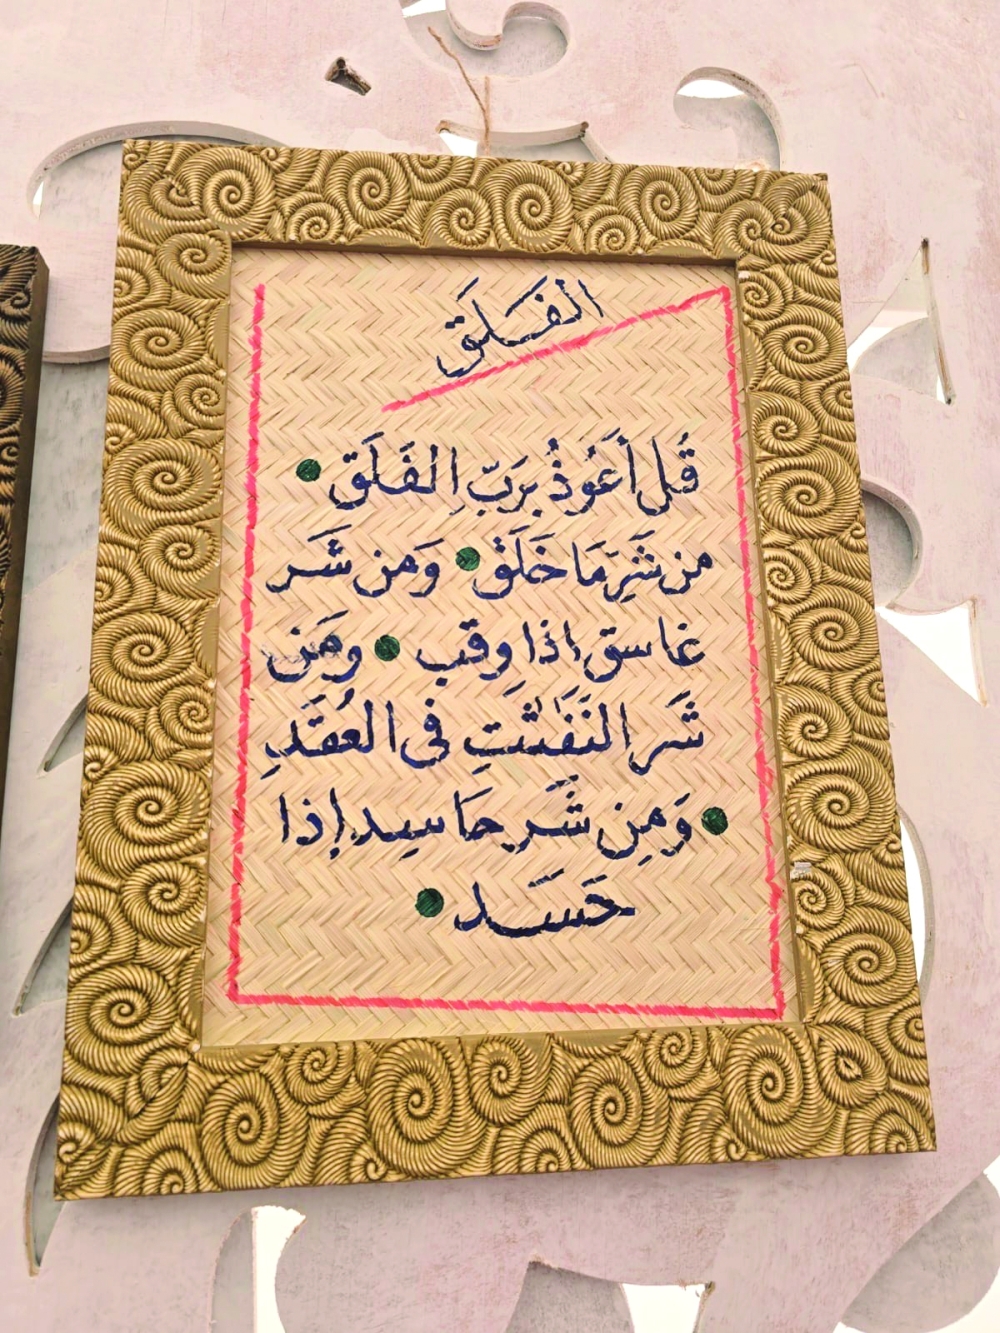 الفَلَق
قُل أَعُوذُ بِرَبِّ اِلفَلَق ●
من شَرِّ مَا خَلَق ● وَمن شَر
غاسق إذا وقب ● ومَن
شَر النَفَّٰثَٰتِ في العُقَدِ
● وَمِن شَر حَاسِدٍ إذا
حَسَد ●